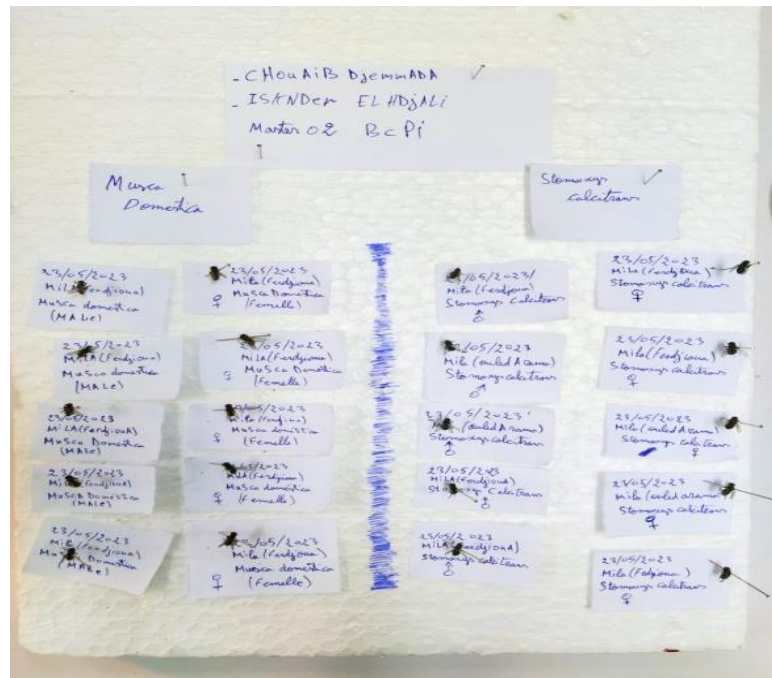 - CHOUAIB DJEMMADA
- ISKNDER ELHDJALI
Master 02 BcPi
Musca
Domestica
Stomoxys
calcitrans
23/05/2023
MilA(Ferdjioua)
Musca domestica
(MALe)
23/05/2023
MilA(Ferdjioua)
Musca domestica
(MALe)
23/05/2023
MilA(Ferdjioua)
Musca Domestica
(MALe)
23/05/2023
Mila(Ferdjioua)
Musca Domestica
(MALe)
23/05/2023
Mila(Ferdjioua)
Musca Domestica
(MALe)
23/05/2023
Mila(Ferdjioua)
♀ Musca Domestica
(Femelle)
23/05/2023
MilA(Ferdjioua)
♀ Musca Domestica
(Femelle)
23/05/2023
Mila(Ferdjioua)
♀ Musca domestica
(Femelle)
23/05/2023
MilA(Ferdjioua)
♀ Musca domestica
(Femelle)
23/05/2023
Mila(Ferdjioua)
♀ Musca domestica
(Femelle)
23/05/2023
Mila(Ferdjioua)
Stomoxys calcitrans
♂
23/05/2023
Mila(ouled Arama)
Stomoxys calcitrans
♂
23/05/2023
Mila(ouled Arama)
Stomoxys calcitrans
♂
23/05/2023
Mila(Ferdjioua)
Stomoxys Calcitrans
♂
23/05/2023
MilA(FerdjiouA)
Stomoxys calcitrans
♂
23/05/2023
MilA(Ferdjioua)
Stomoxys calcitrans
♀
23/05/2023
Mila(Ferdjioua)
Stomoxys calcitrans
♀
23/05/2023
Mila(ouled Arama)
Stomoxys calcitrans
♀
23/05/2023
Mila(ouled arama)
Stomoxys calcitrans
♀
23/05/2023
Mila(Ferdjioua)
Stomoxys calcitrans
♀